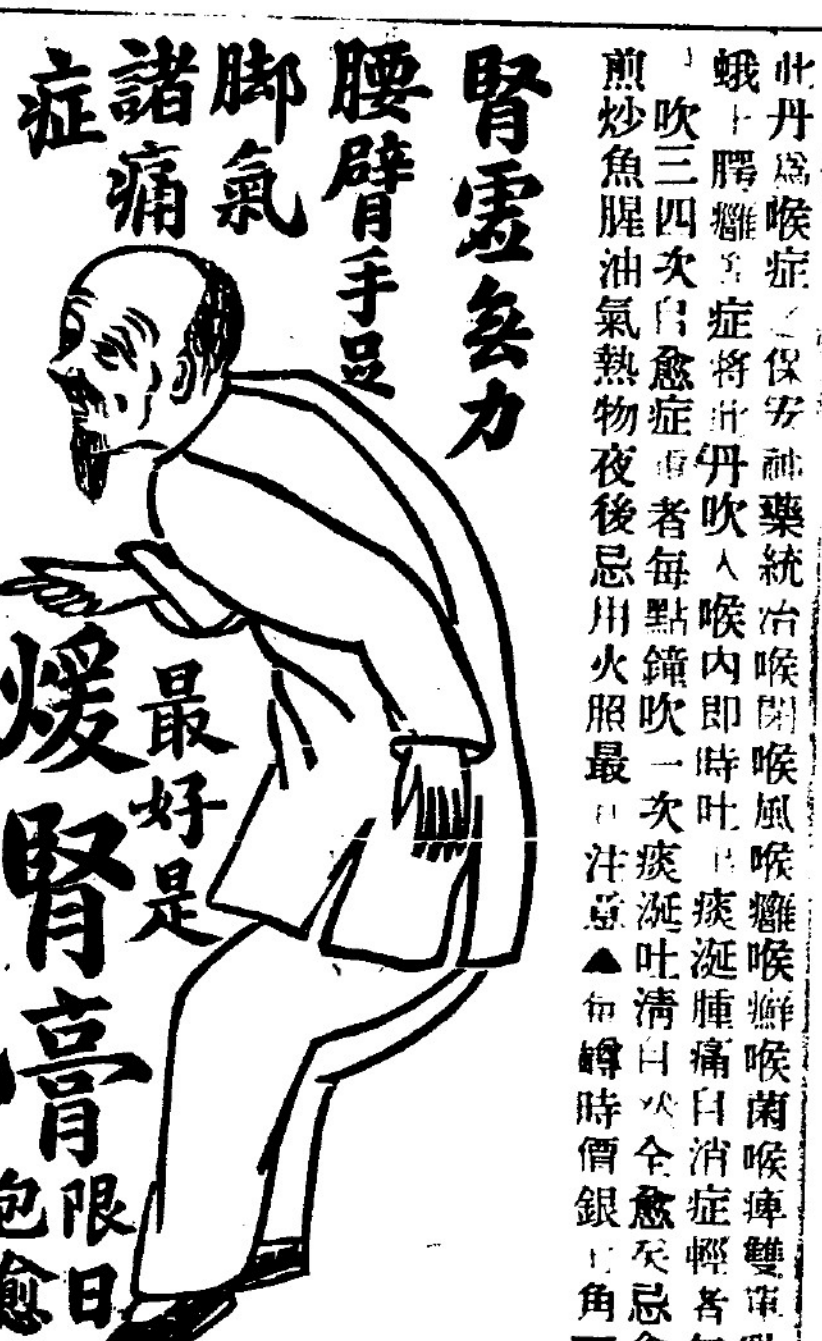 此丹為喉症之保安神藥統治喉閉喉風喉癰喉癬喉菌喉痺雙單
蛾上腭癰等症將此丹吹入喉內即時吐出痰涎腫痛自消症輕者
吹三四次自愈症重者每點鐘吹一次痰涎吐清自然全愈矣忌
煎炒魚腥油氣熱物夜後忌用火照最注意▲每罇時價銀角
腎虛無力
腰臂手足
脚氣
諸痛
症
最好是
煖腎膏
限日
包愈